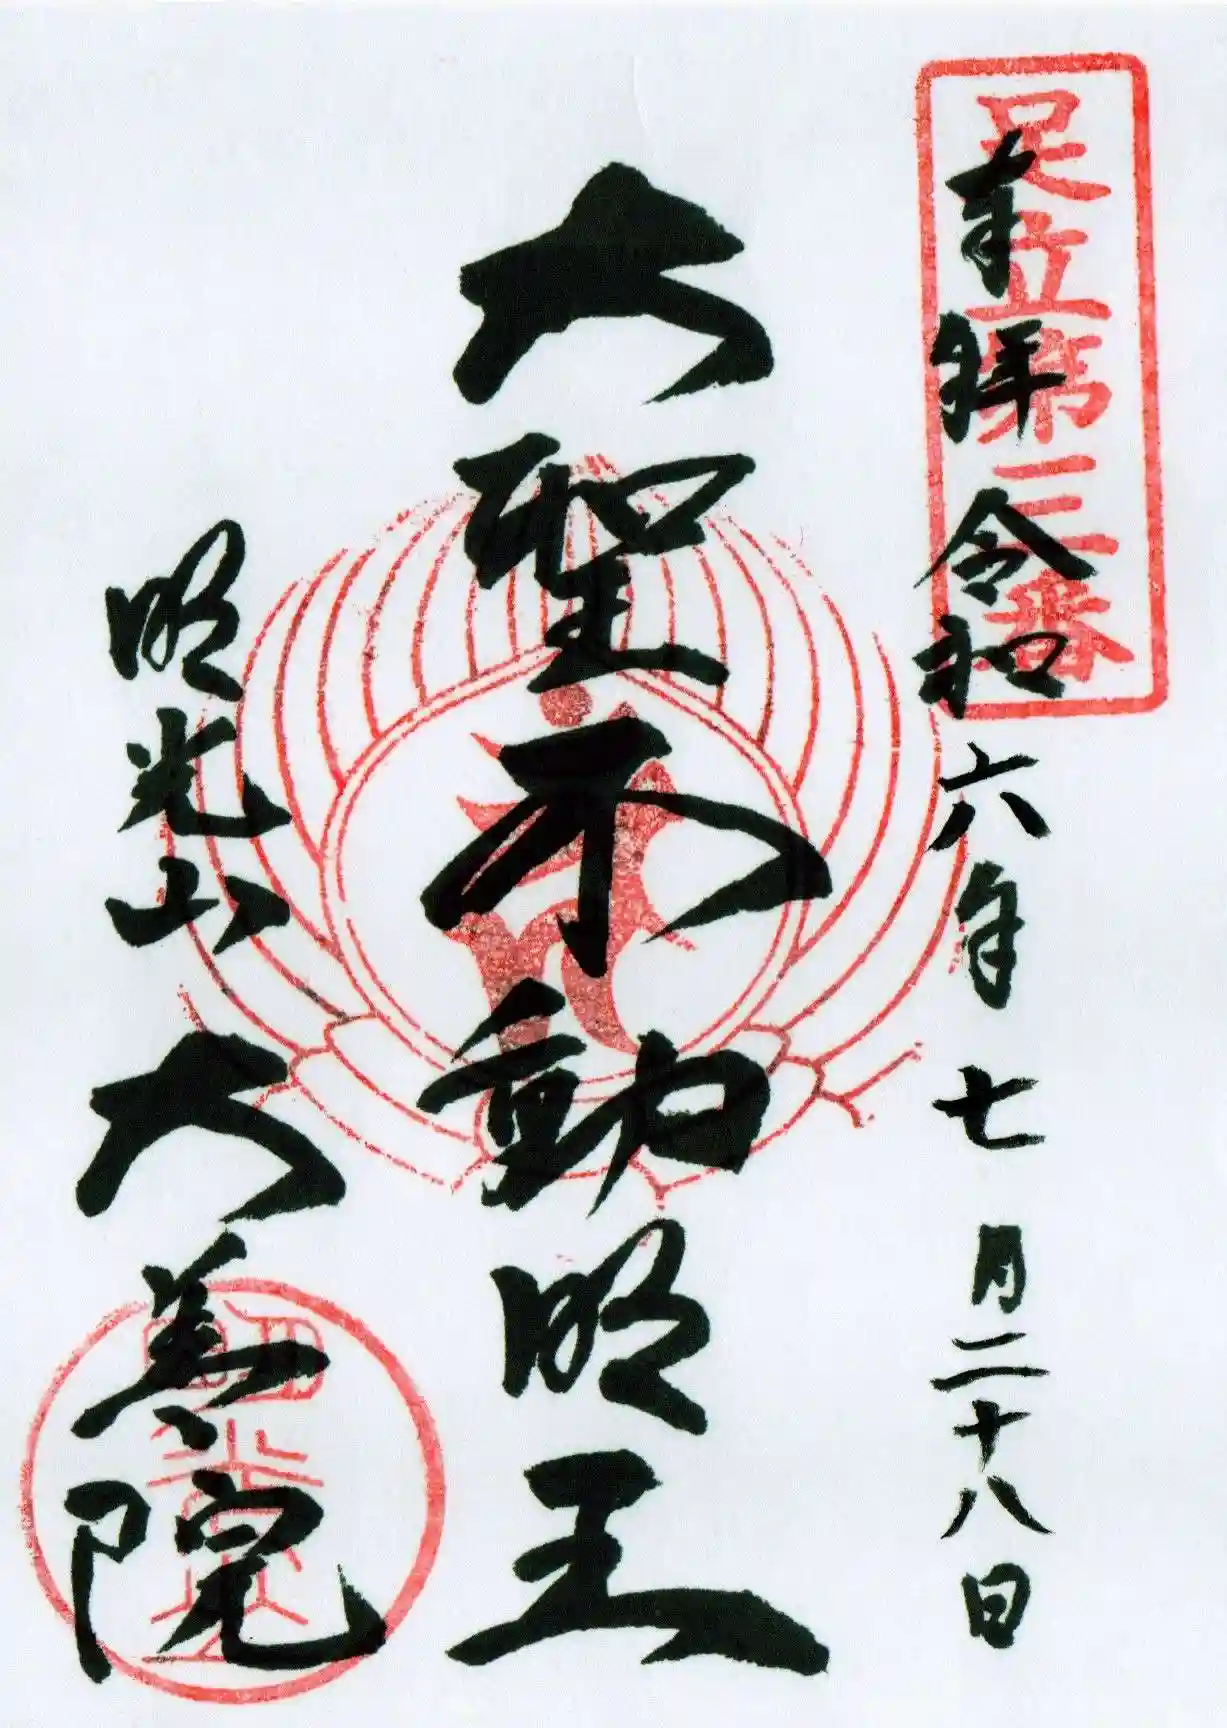 足立第三番
奉拝 令和六年七月二十八日
大聖不動明王
明光山 大善院